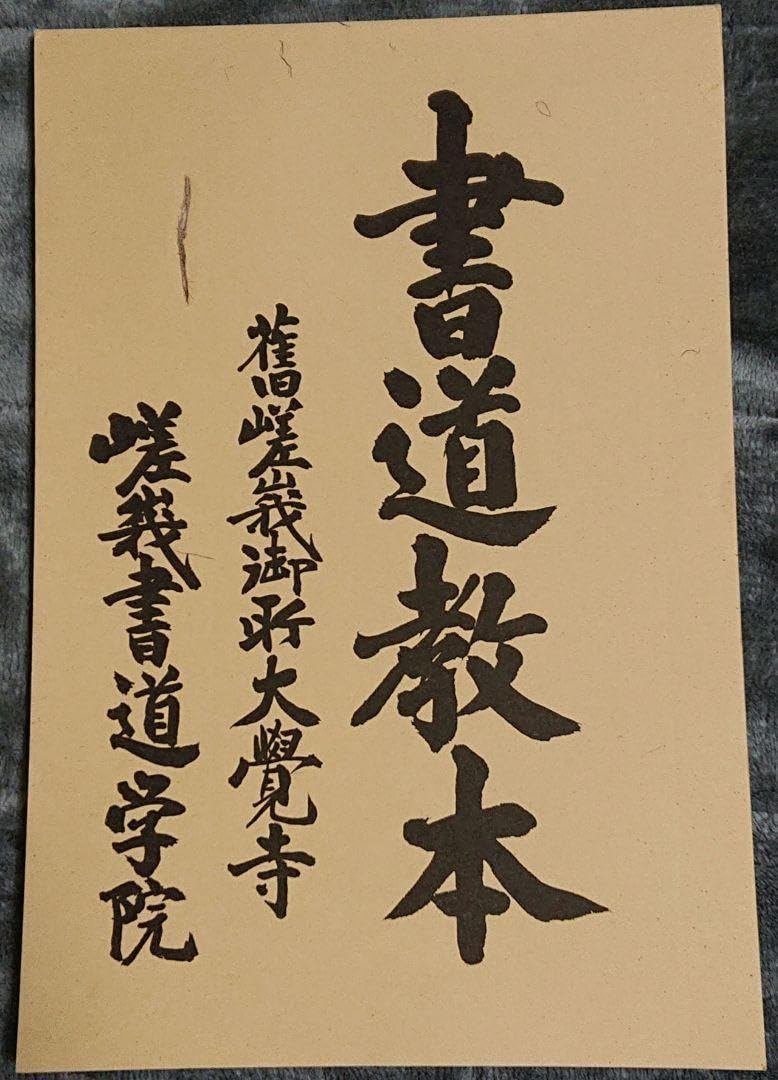 書道教本
舊嵯峩御所大覺寺
嵯峩書道学院